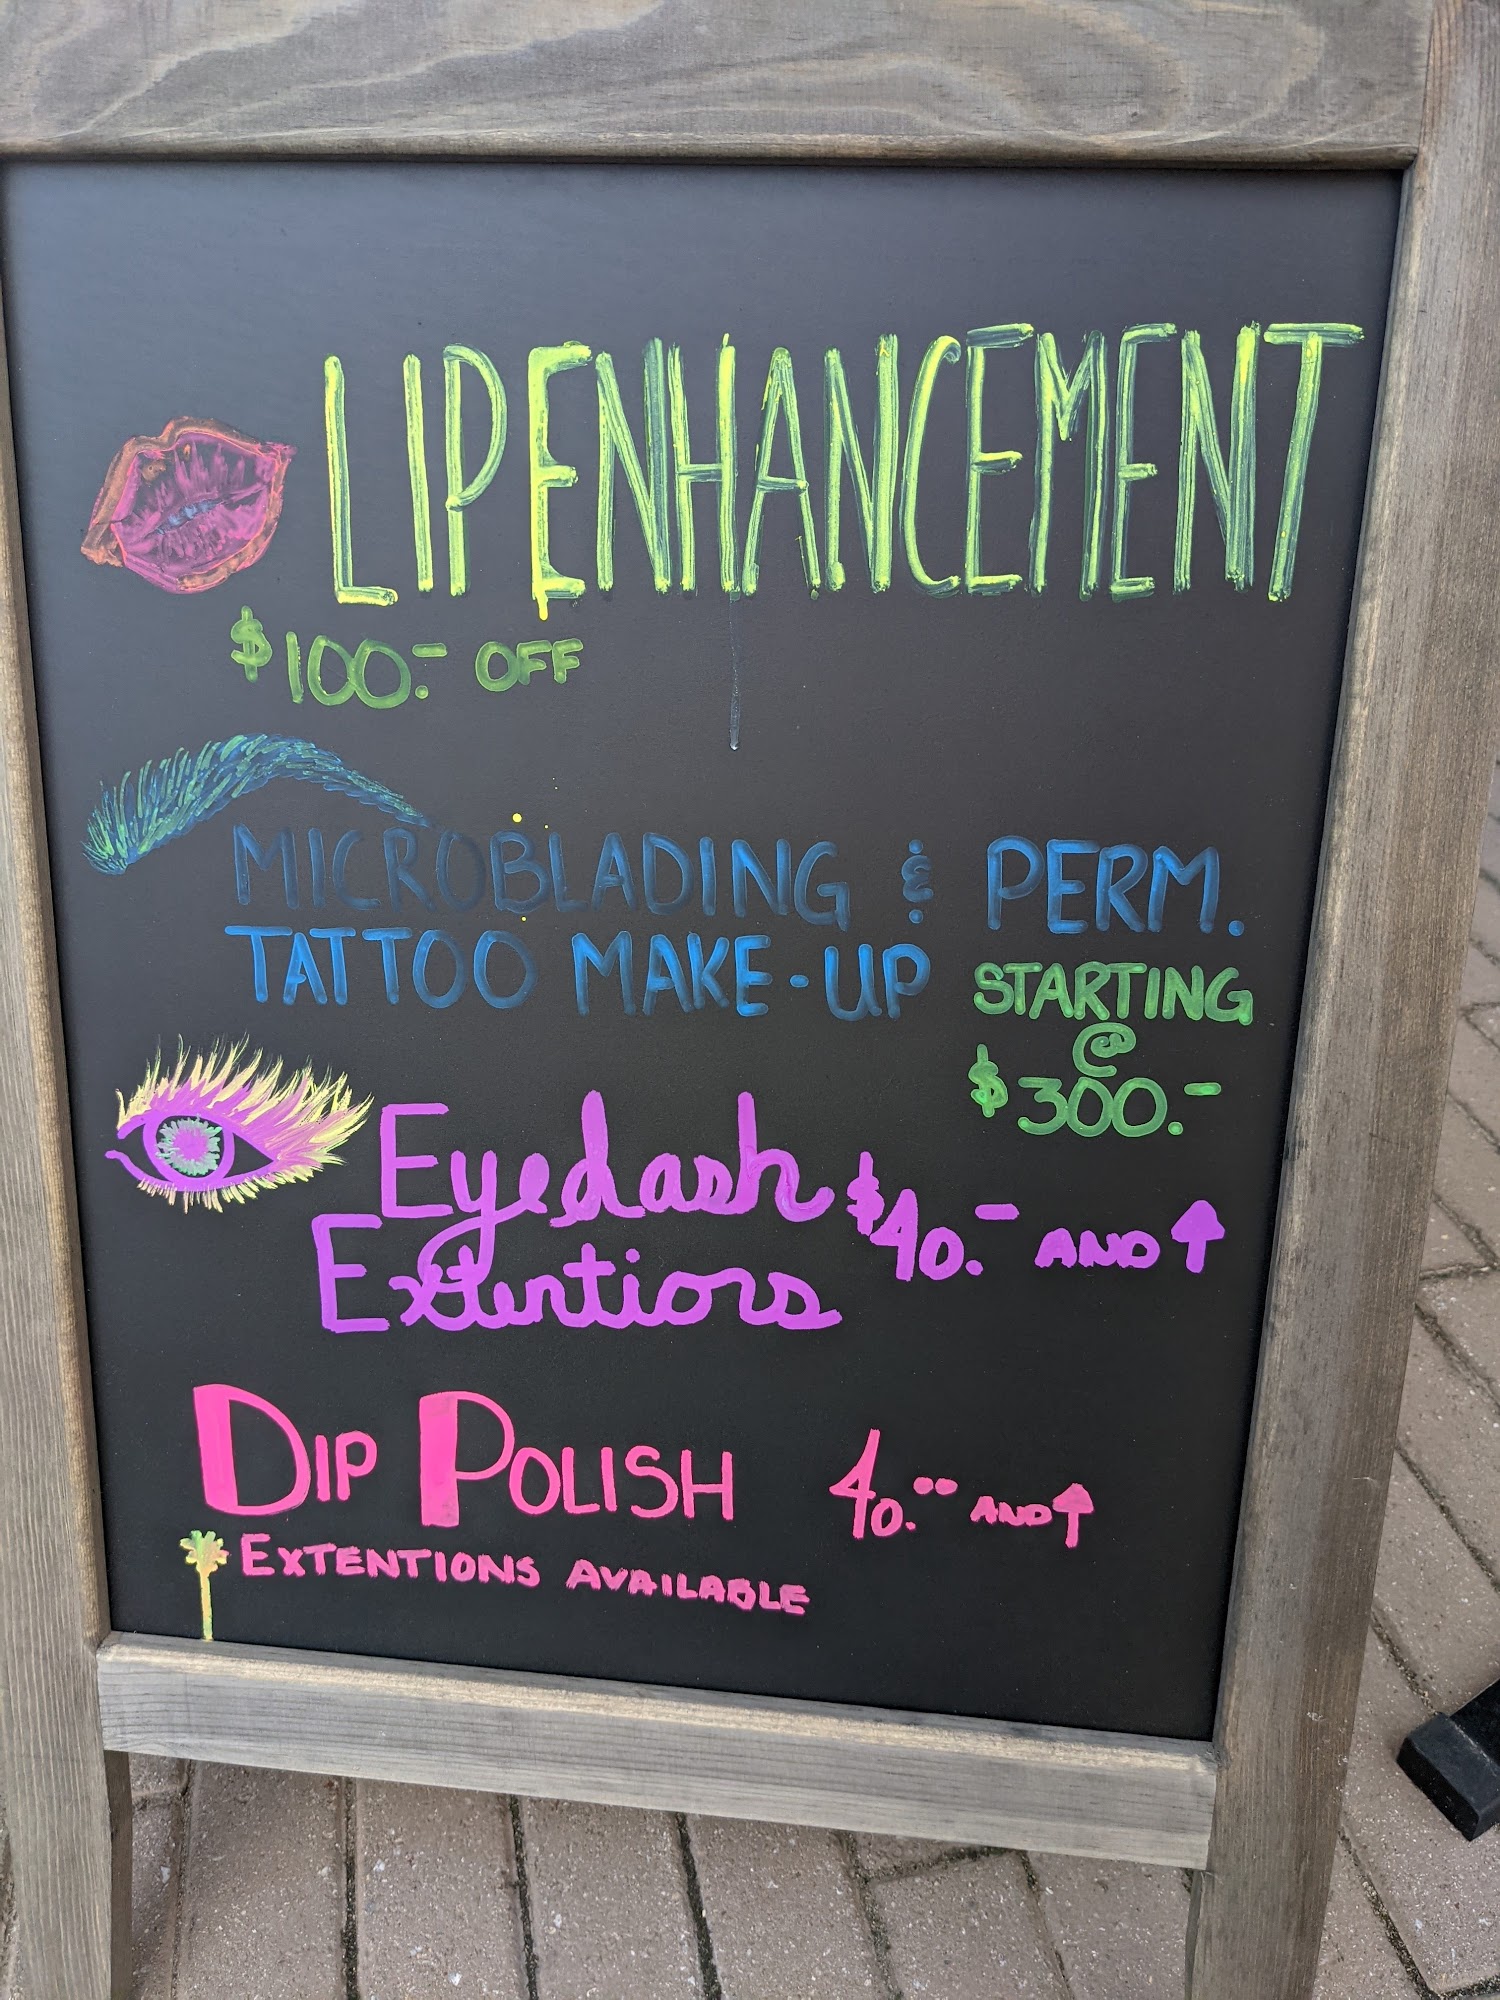 LIP ENHANCEMENT
$100.- OFF
MICROBLADING & PERM.
TATTOO MAKE-UP
STARTING
@
$300.-
Eyelash
Extentions
$40.- AND ↑
DIP POLISH 40.00 AND ↑
EXTENTIONS AVAILABLE